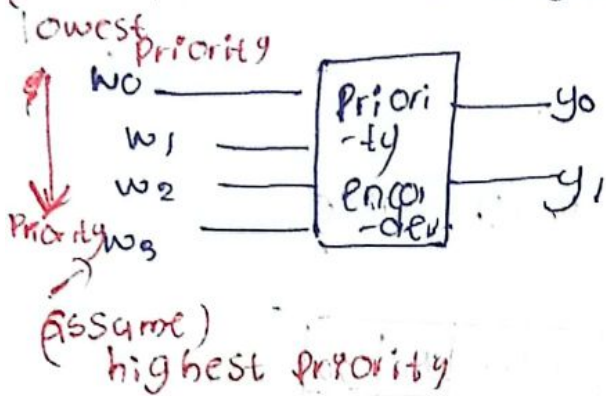 lowest
Priority
w0
w1
w2
Priority w3
Priori
-ty
encod
-der
y0
y1
(assume)
highest priority